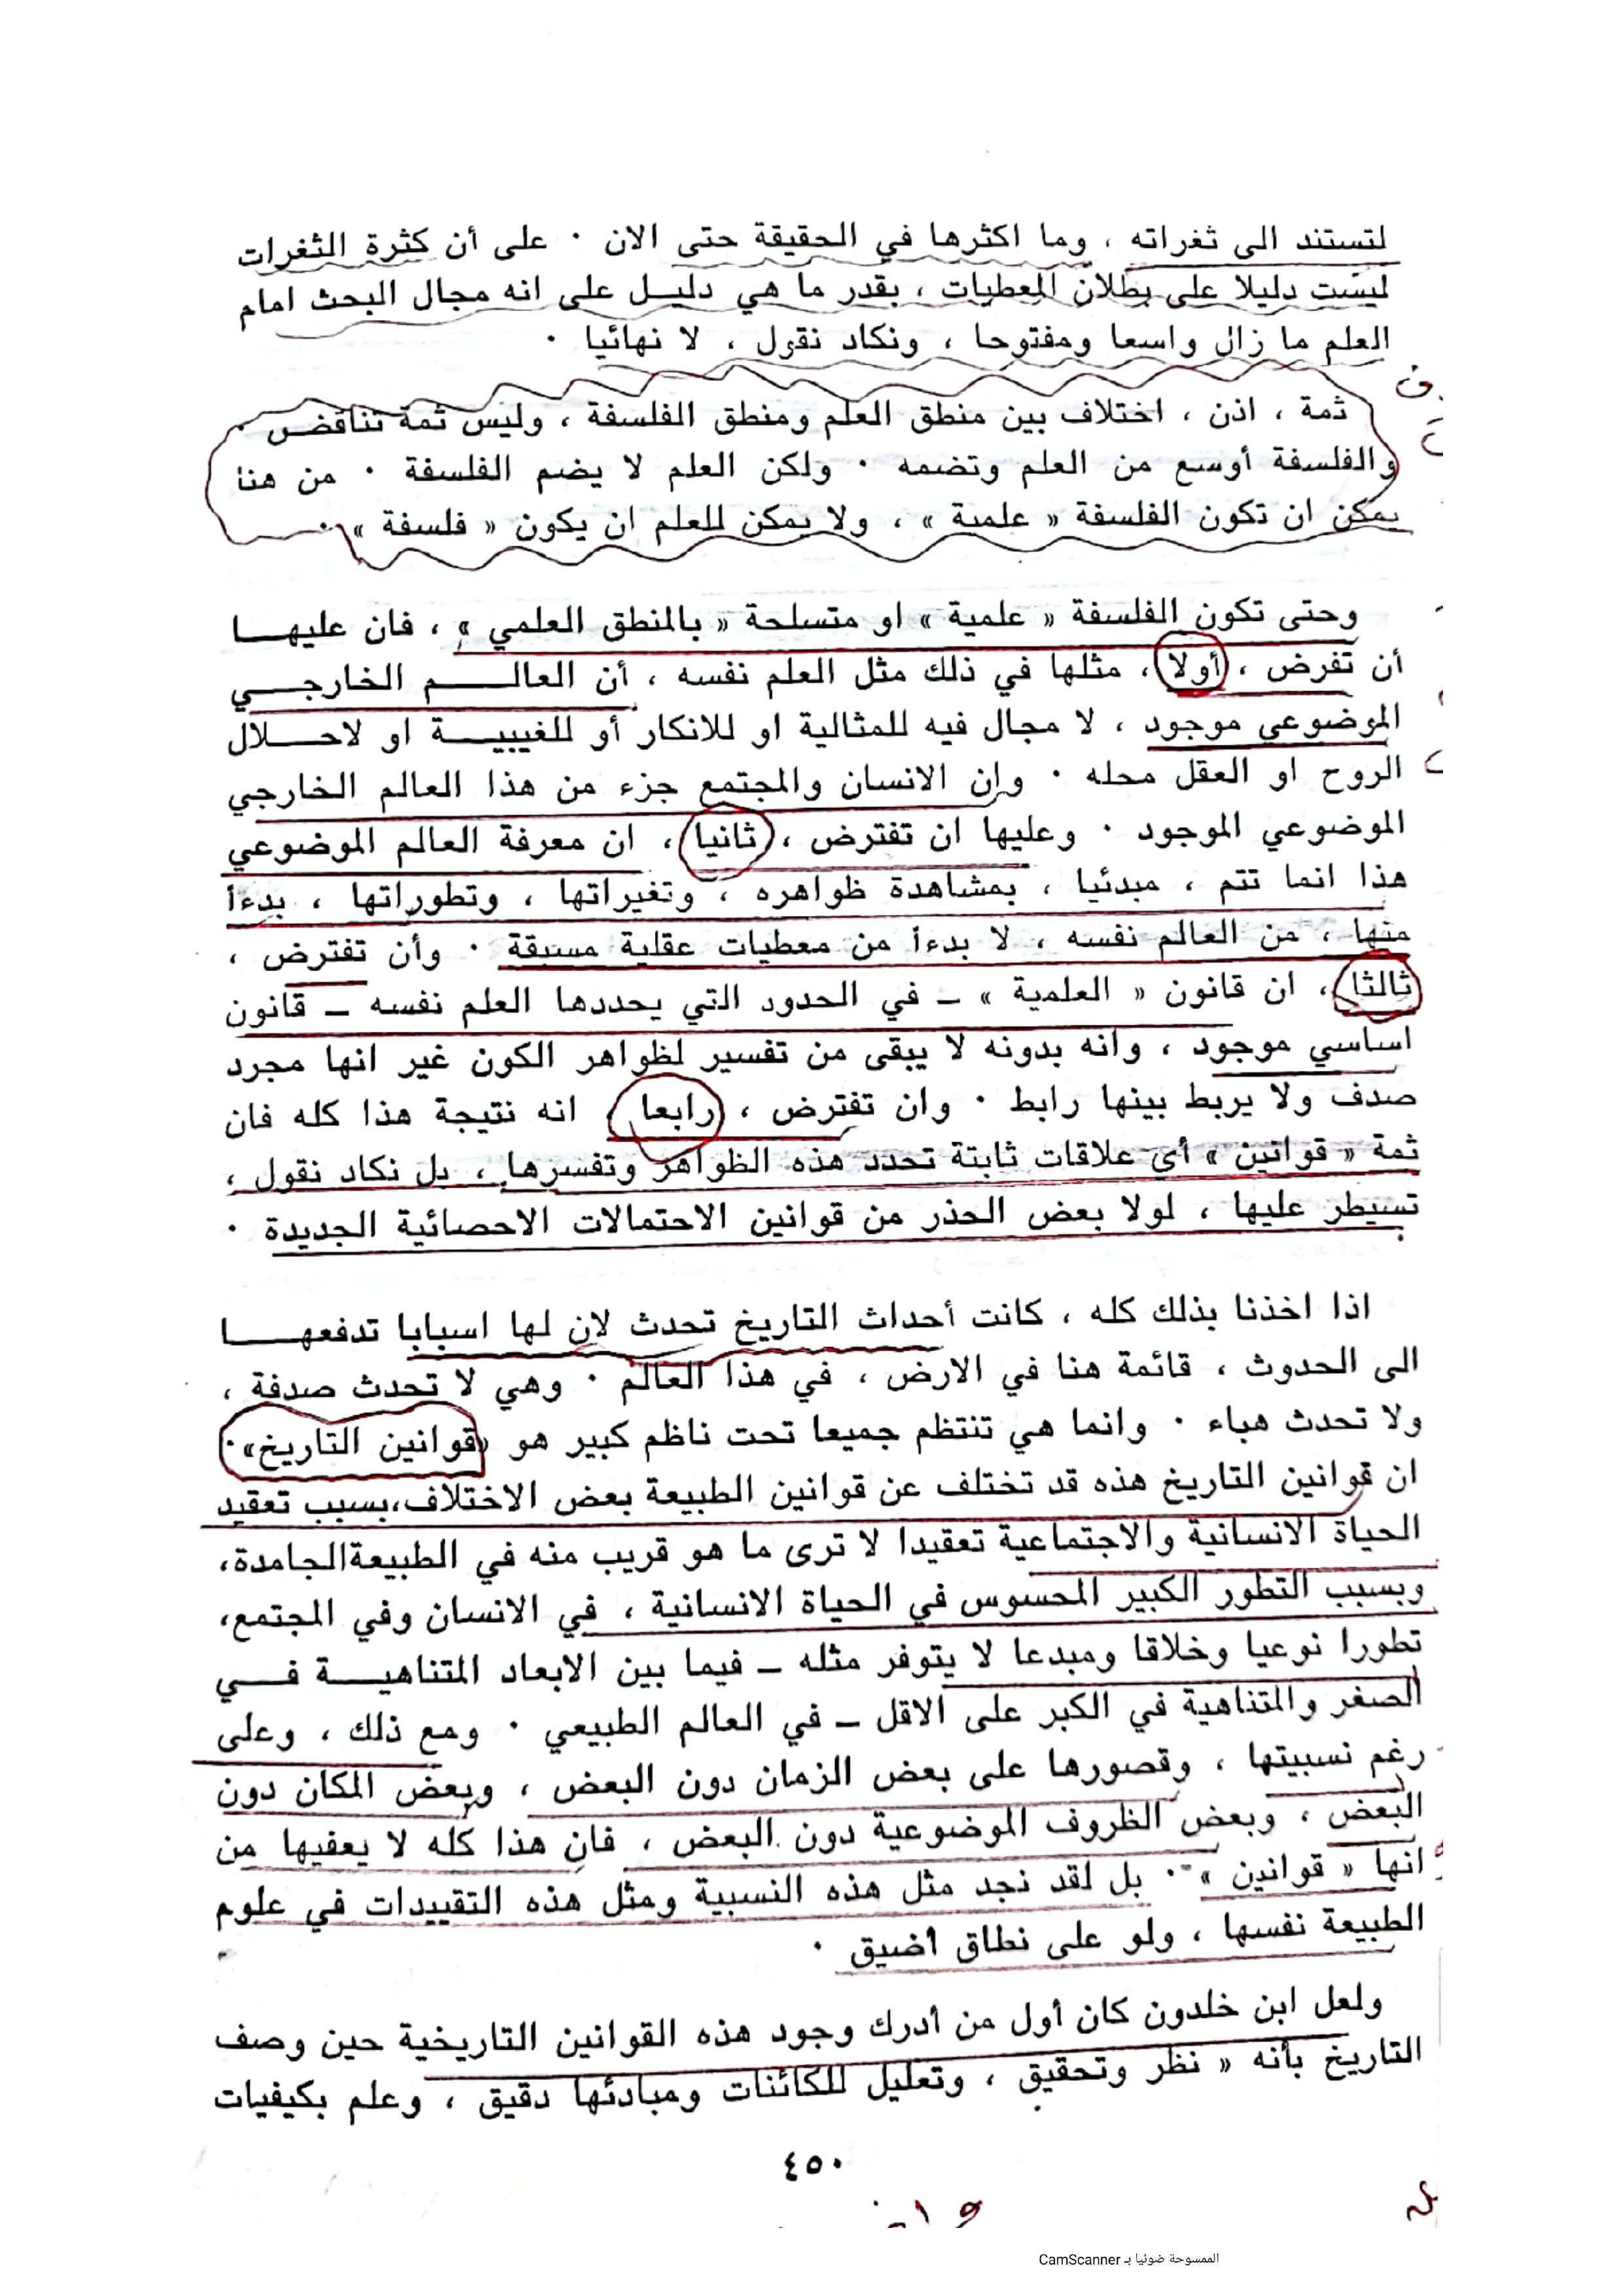 لتستند الى ثغراته ، وما اكثرها في الحقيقة حتى الان ٠ على أن كثرة الثغرات
ليست دليلا على بطلان المعطيات ، بقدر ما هي دليــل على انه مجال البحث امام
العلم ما زال واسعا ومفتوحا ، ونكاد نقول ، لا نهائيا ٠
ثمة ، اذن ، اختلاف بين منطق العلم ومنطق الفلسفة ، وليس ثمة تناقض ٠
والفلسفة أوسع من العلم وتضمه ٠ ولكن العلم لا يضم الفلسفة ٠ من هنا
يمكن ان تكون الفلسفة « علمية » ، ولا يمكن للعلم ان يكون « فلسفة » ٠
وحتى تكون الفلسفة « علمية » او متسلحة « بالمنطق العلمي » ، فان عليهـــا
أن تفرض ، أولا ، مثلها في ذلك مثل العلم نفسه ، أن العالـــــم الخارجـــي
الموضوعي موجود ، لا مجال فيه للمثالية او للانكار أو للغيبيـــة او لاحـــلال
الروح او العقل محله ٠ وان الانسان والمجتمع جزء من هذا العالم الخارجي
الموضوعي الموجود ٠ وعليها ان تفترض ، ثانيا ، ان معرفة العالم الموضوعي
هذا انما تتم ، مبدئيا ، بمشاهدة ظواهره ، وتغيراتها ، وتطوراتها ، بدءاً
منها ، من العالم نفسه ، لا بدءاً من معطيات عقلية مسبقة ٠ وأن تفترض ،
ثالثا ، ان قانون « العلمية » ــ في الحدود التي يحددها العلم نفسه ــ قانون
اساسي موجود ، وانه بدونه لا يبقى من تفسير لظواهر الكون غير انها مجرد
صدف ولا يربط بينها رابط ٠ وان تفترض ، رابعا ، انه نتيجة هذا كله فان
ثمة « قوانين » أي علاقات ثابتة تحدد هذه الظواهر وتفسرها ، بل نكاد نقول ،
تسيطر عليها ، لولا بعض الحذر من قوانين الاحتمالات الاحصائية الجديدة ٠
اذا اخذنا بذلك كله ، كانت أحداث التاريخ تحدث لان لها اسبابا تدفعهـــا
الى الحدوث ، قائمة هنا في الارض ، في هذا العالم ٠ وهي لا تحدث صدفة ،
ولا تحدث هباء ٠ وانما هي تنتظم جميعا تحت ناظم كبير هو «قوانين التاريخ»٠
ان قوانين التاريخ هذه قد تختلف عن قوانين الطبيعة بعض الاختلاف،بسبب تعقيد
الحياة الانسانية والاجتماعية تعقيدا لا ترى ما هو قريب منه في الطبيعةالجامدة،
وبسبب التطور الكبير المحسوس في الحياة الانسانية ، في الانسان وفي المجتمع،
تطورا نوعيا وخلاقا ومبدعا لا يتوفر مثله ــ فيما بين الابعاد المتناهيـــة فـــي
الصغر والمتناهية في الكبر على الاقل ــ في العالم الطبيعي ٠ ومع ذلك ، وعلى
رغم نسبيتها ، وقصورها على بعض الزمان دون البعض ، وبعض المكان دون
البعض ، وبعض الظروف الموضوعية دون البعض ، فان هذا كله لا يعفيها من
انها « قوانين » ٠ بل لقد نجد مثل هذه النسبية ومثل هذه التقييدات في علوم
الطبيعة نفسها ، ولو على نطاق أضيق ٠
ولعل ابن خلدون كان أول من أدرك وجود هذه القوانين التاريخية حين وصف
التاريخ بأنه « نظر وتحقيق ، وتعليل للكائنات ومبادئها دقيق ، وعلم بكيفيات
٤٥٠
الممسوحة ضوئيا بـ CamScanner